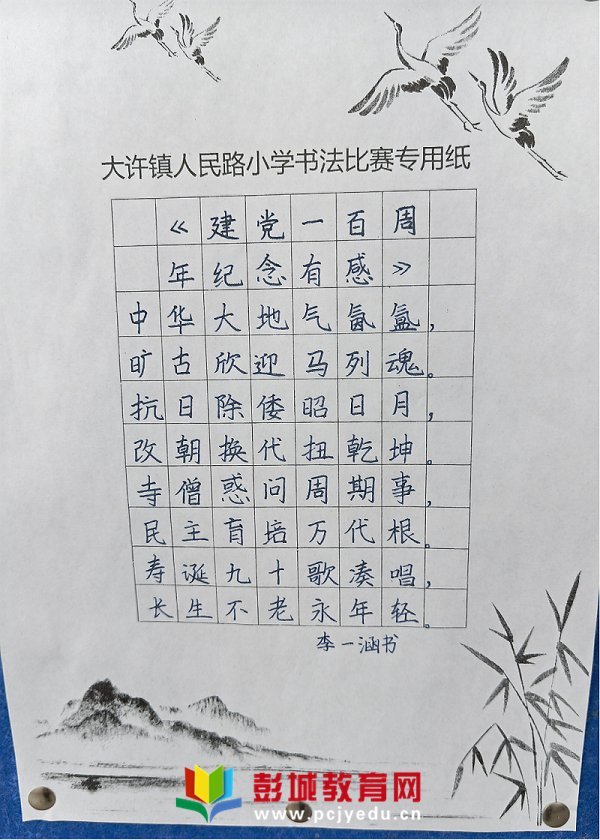 大许镇人民路小学书法比赛专用纸
《建党一百周
年纪念有感》
中华大地气氤氲，
旷古欣迎马列魂。
抗日除倭昭日月，
改朝换代扭乾坤。
寺僧惑问周期事，
民主育培万代根。
寿诞九十歌凑唱，
长生不老永年轻。
李一涵书
彭城教育网
www.pcjyedu.cn